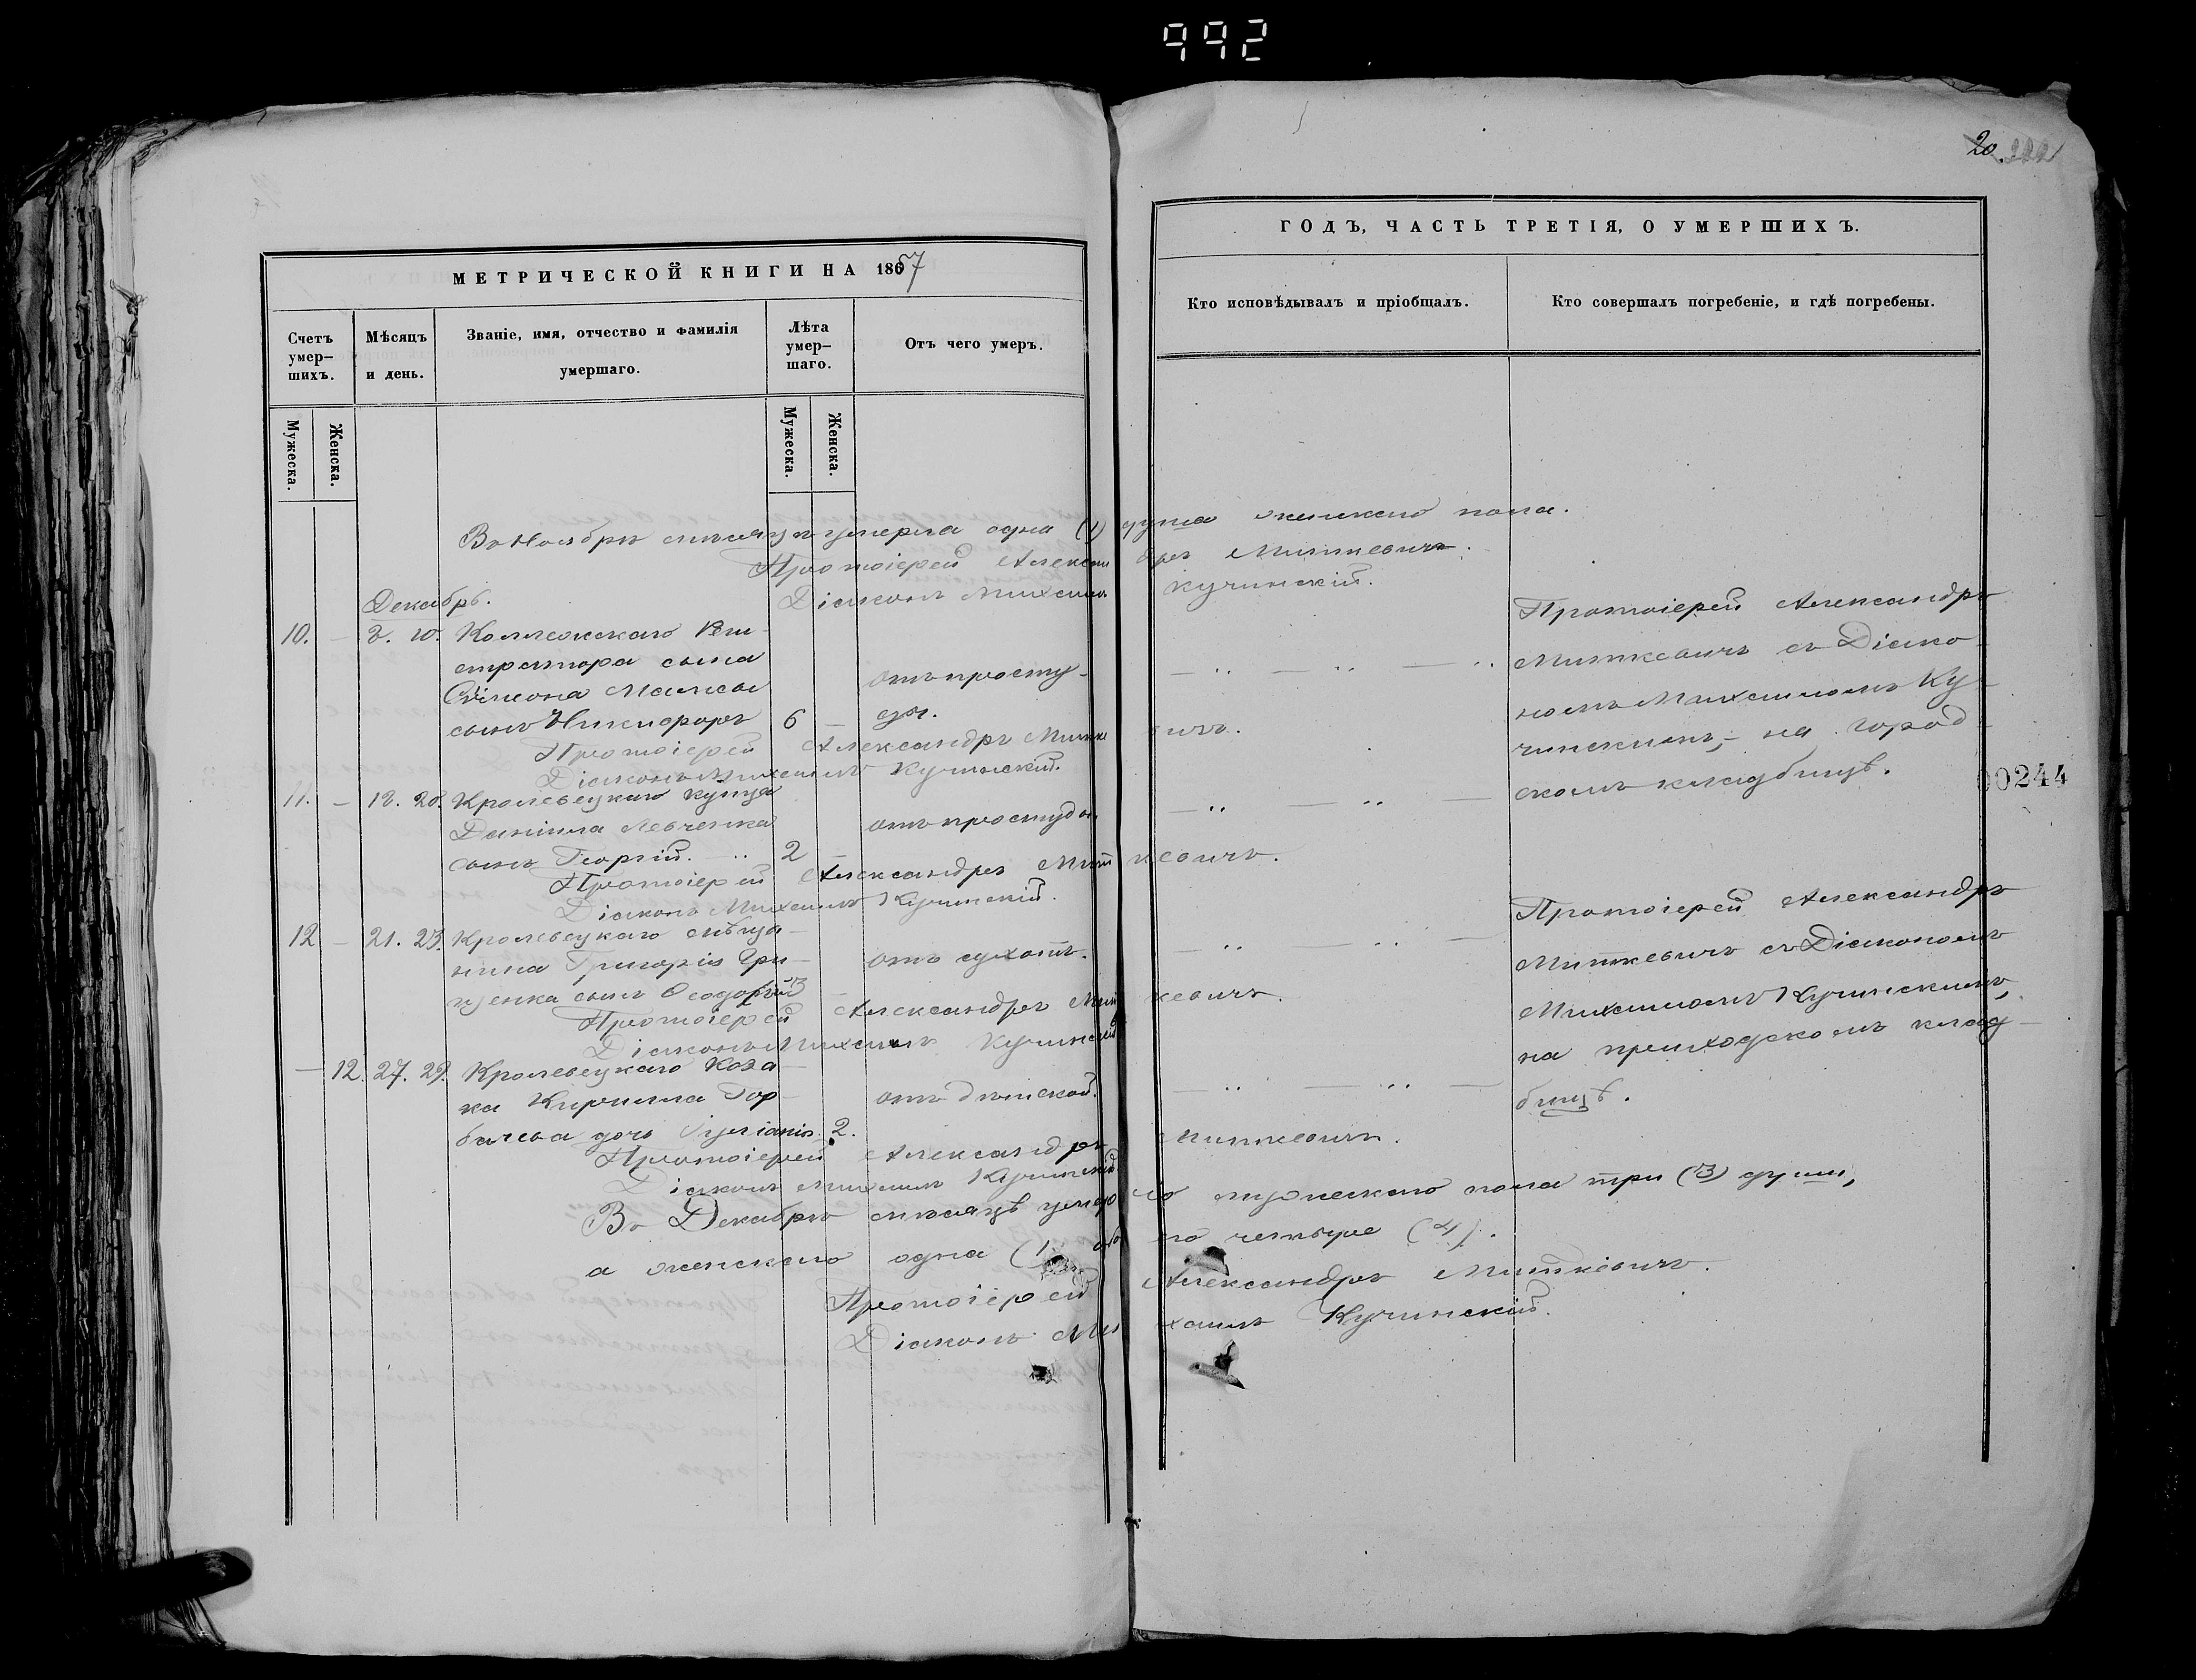 992
20.
МЕТРИЧЕСКОЙ КНИГИ НА 1867
Счетъ умер–шихъ.
Мѣсяцъ и день.
Званіе, имя, отчество и фамилія умершаго.
Лѣта умер–шаго.
Отъ чего умеръ.
Мужеска.
Женска.
Мужеска.
Женска.
ГОДЪ, ЧАСТЬ ТРЕТІЯ, О УМЕРШИХЪ.
Кто исповѣдывалъ и пріобщалъ.
Кто совершалъ погребеніе, и гдѣ погребены.
Въ Ноябрѣ мѣсяцѣ умерла одна (1) душа женскаго пола.
Протоіерей Александръ Миткевичъ.
Діаконъ Михаилъ Кучинскій.
Декабрь.
10. – 8. 10. Коллежскаго Реги–
стратора сына
Сѵмеона
сынъ Никифоръ 6 – отъ просту–
ды.
Протоіерей Александръ Миткевичъ.
Діаконъ Михаилъ Кучинскій.
Протоіерей Александръ
Миткевичъ съ Діако–
номъ Михаиломъ Ку–
чинскимъ, – на город–
скомъ кладбищѣ.
11. – 18. 20. Кролевецкаго купца
Даніила Левченка отъ простуды
сынъ Георгій. 2 –
Протоіерей Александръ Миткевичъ.
Діаконъ Михаилъ Кучинскій.
00244
12 – 21. 23. Кролевецкаго мѣща–
нина Григорія Гри– отъ сухотъ.
ценка сынъ Ѳеодоръ 3 –
Протоіерей Александръ Миткевичъ.
Діаконъ Михаилъ Кучинскій
Протоіерей Александръ
Миткевичъ съ Діакономъ
Михаиломъ Кучинскимъ,
на приходскомъ клад–
бищѣ.
– 12. 27. 29. Кролевецкаго Коза–
ка Кирилла Гор– отъ дѣтской.
бачева дочь Іуліанія. 2.
Протоіерей Александръ Миткевичъ.
Діаконъ Михаилъ Кучинскій.
Въ Декабрѣ мѣсяцѣ умерло мужескаго пола три (3) души,
а женскаго одна (1 обо его четыре (4).
Протоіерей Александръ Миткевичъ.
Діаконъ Михаилъ Кучинскій.